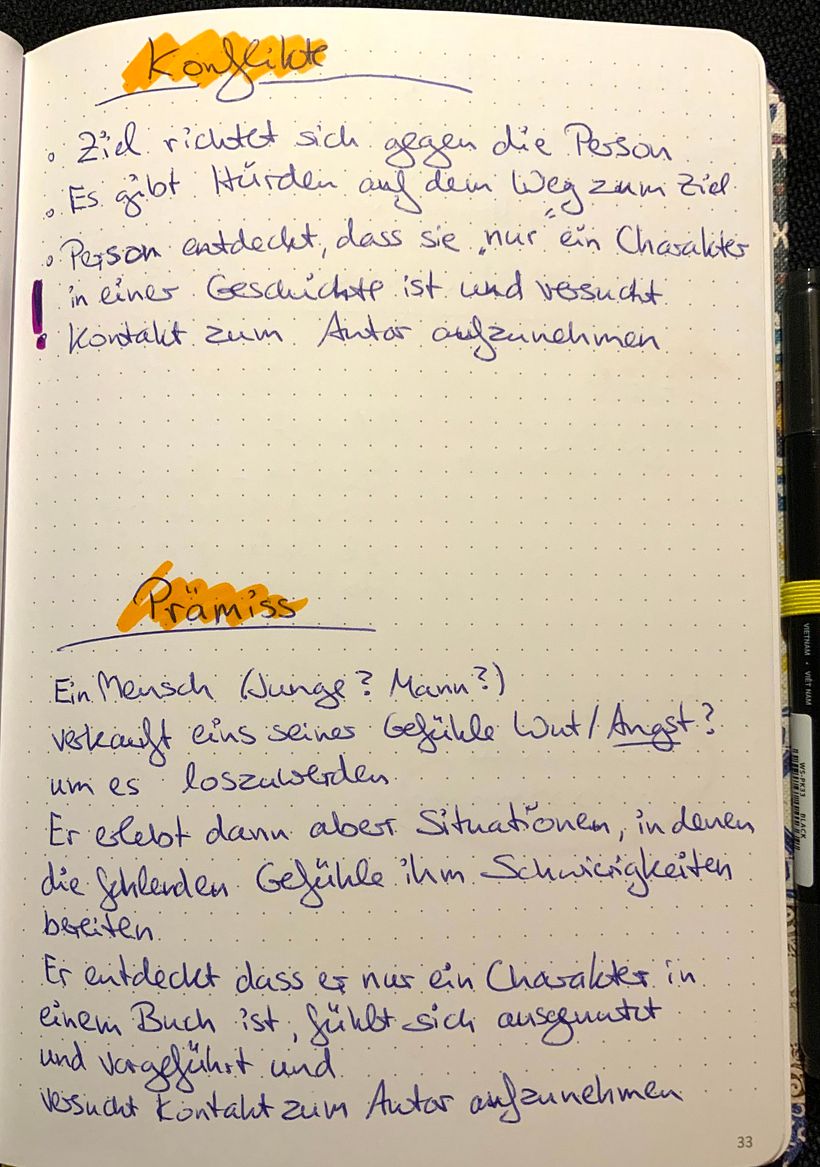 Konflikte
◦ Ziel richtet sich gegen die Person
◦ Es gibt Hürden auf dem Weg zum Ziel
◦ Person entdeckt, dass sie „nur“ ein Charakter
! in einer Geschichte ist und versucht
Kontakt zum Autor aufzunehmen
Prämiss
Ein Mensch (Junge? Mann?)
verkauft eins seiner Gefühle Wut/Angst?
um es loszuwerden
Er erlebt dann aber Situationen, in denen
die fehlenden Gefühle ihm Schwierigkeiten
bereiten.
Er entdeckt dass er nur ein Charakter in
einem Buch ist, fühlt sich ausgenutzt
und vorgeführt und
versucht Kontakt zum Autor aufzunehmen
33
VIETNAM • VIỆT NAM
WS-PK33 BLACK